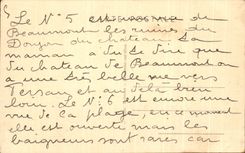 Le N° 5 est de
Beaumont les ruines du
Donjon du château. Sa
maman a dû te dire que
du château de Beaumont on
a une très belle vue vers
Tersan et au delà bien
loin. Le N° 6 est encore une
vue de la plage, en ce moment
elle est ouverte mais les
baigneurs sont rares car